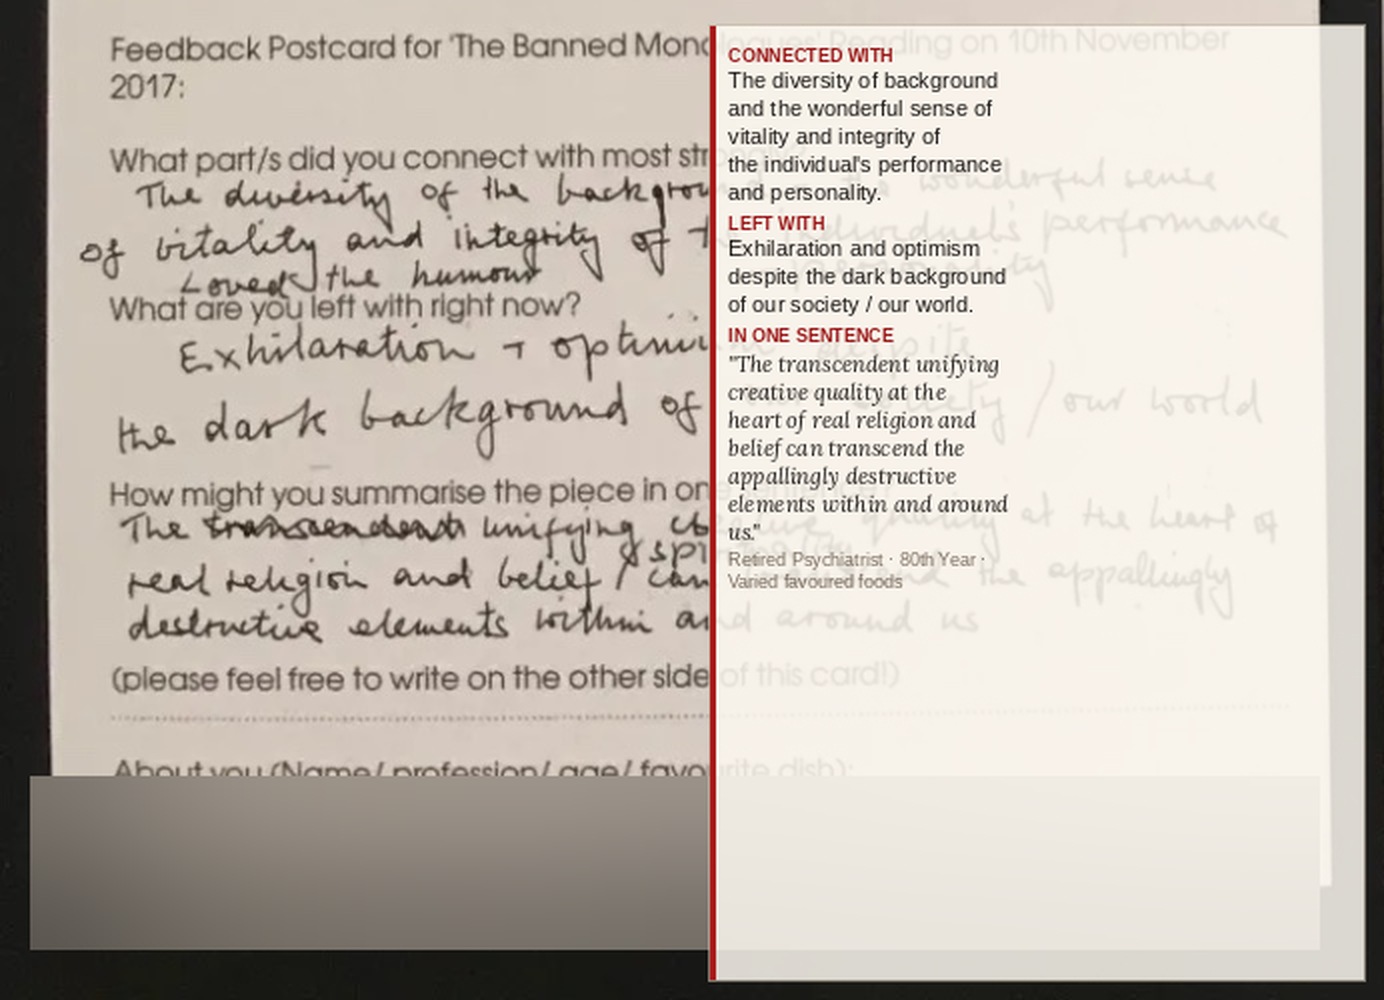 Feedback Postcard for 'The Banned Monologues' Reading on 10th November
2017:
What part/s did you connect with most strongly?
The diversity of the background + the wonderful sense
of vitality and integrity of the individual's performance
Loved the humour personality
What are you left with right now?
Exhilaration + optimism despite
the dark background of our society / our world
How might you summarise the piece in one sentence?
The transcendent unifying creative quality at the heart of
real religion and belief / can transcend the appallingly
destructive elements within and around us
(please feel free to write on the other side of this card!)
About you (Name/ profession/ age/ favourite dish):
CONNECTED WITH
The diversity of background
and the wonderful sense of
vitality and integrity of
the individual's performance
and personality.
LEFT WITH
Exhilaration and optimism
despite the dark background
of our society / our world.
IN ONE SENTENCE
"The transcendent unifying
creative quality at the
heart of real religion and
belief can transcend the
appallingly destructive
elements within and around
us."
Retired Psychiatrist · 80th Year ·
Varied favoured foods